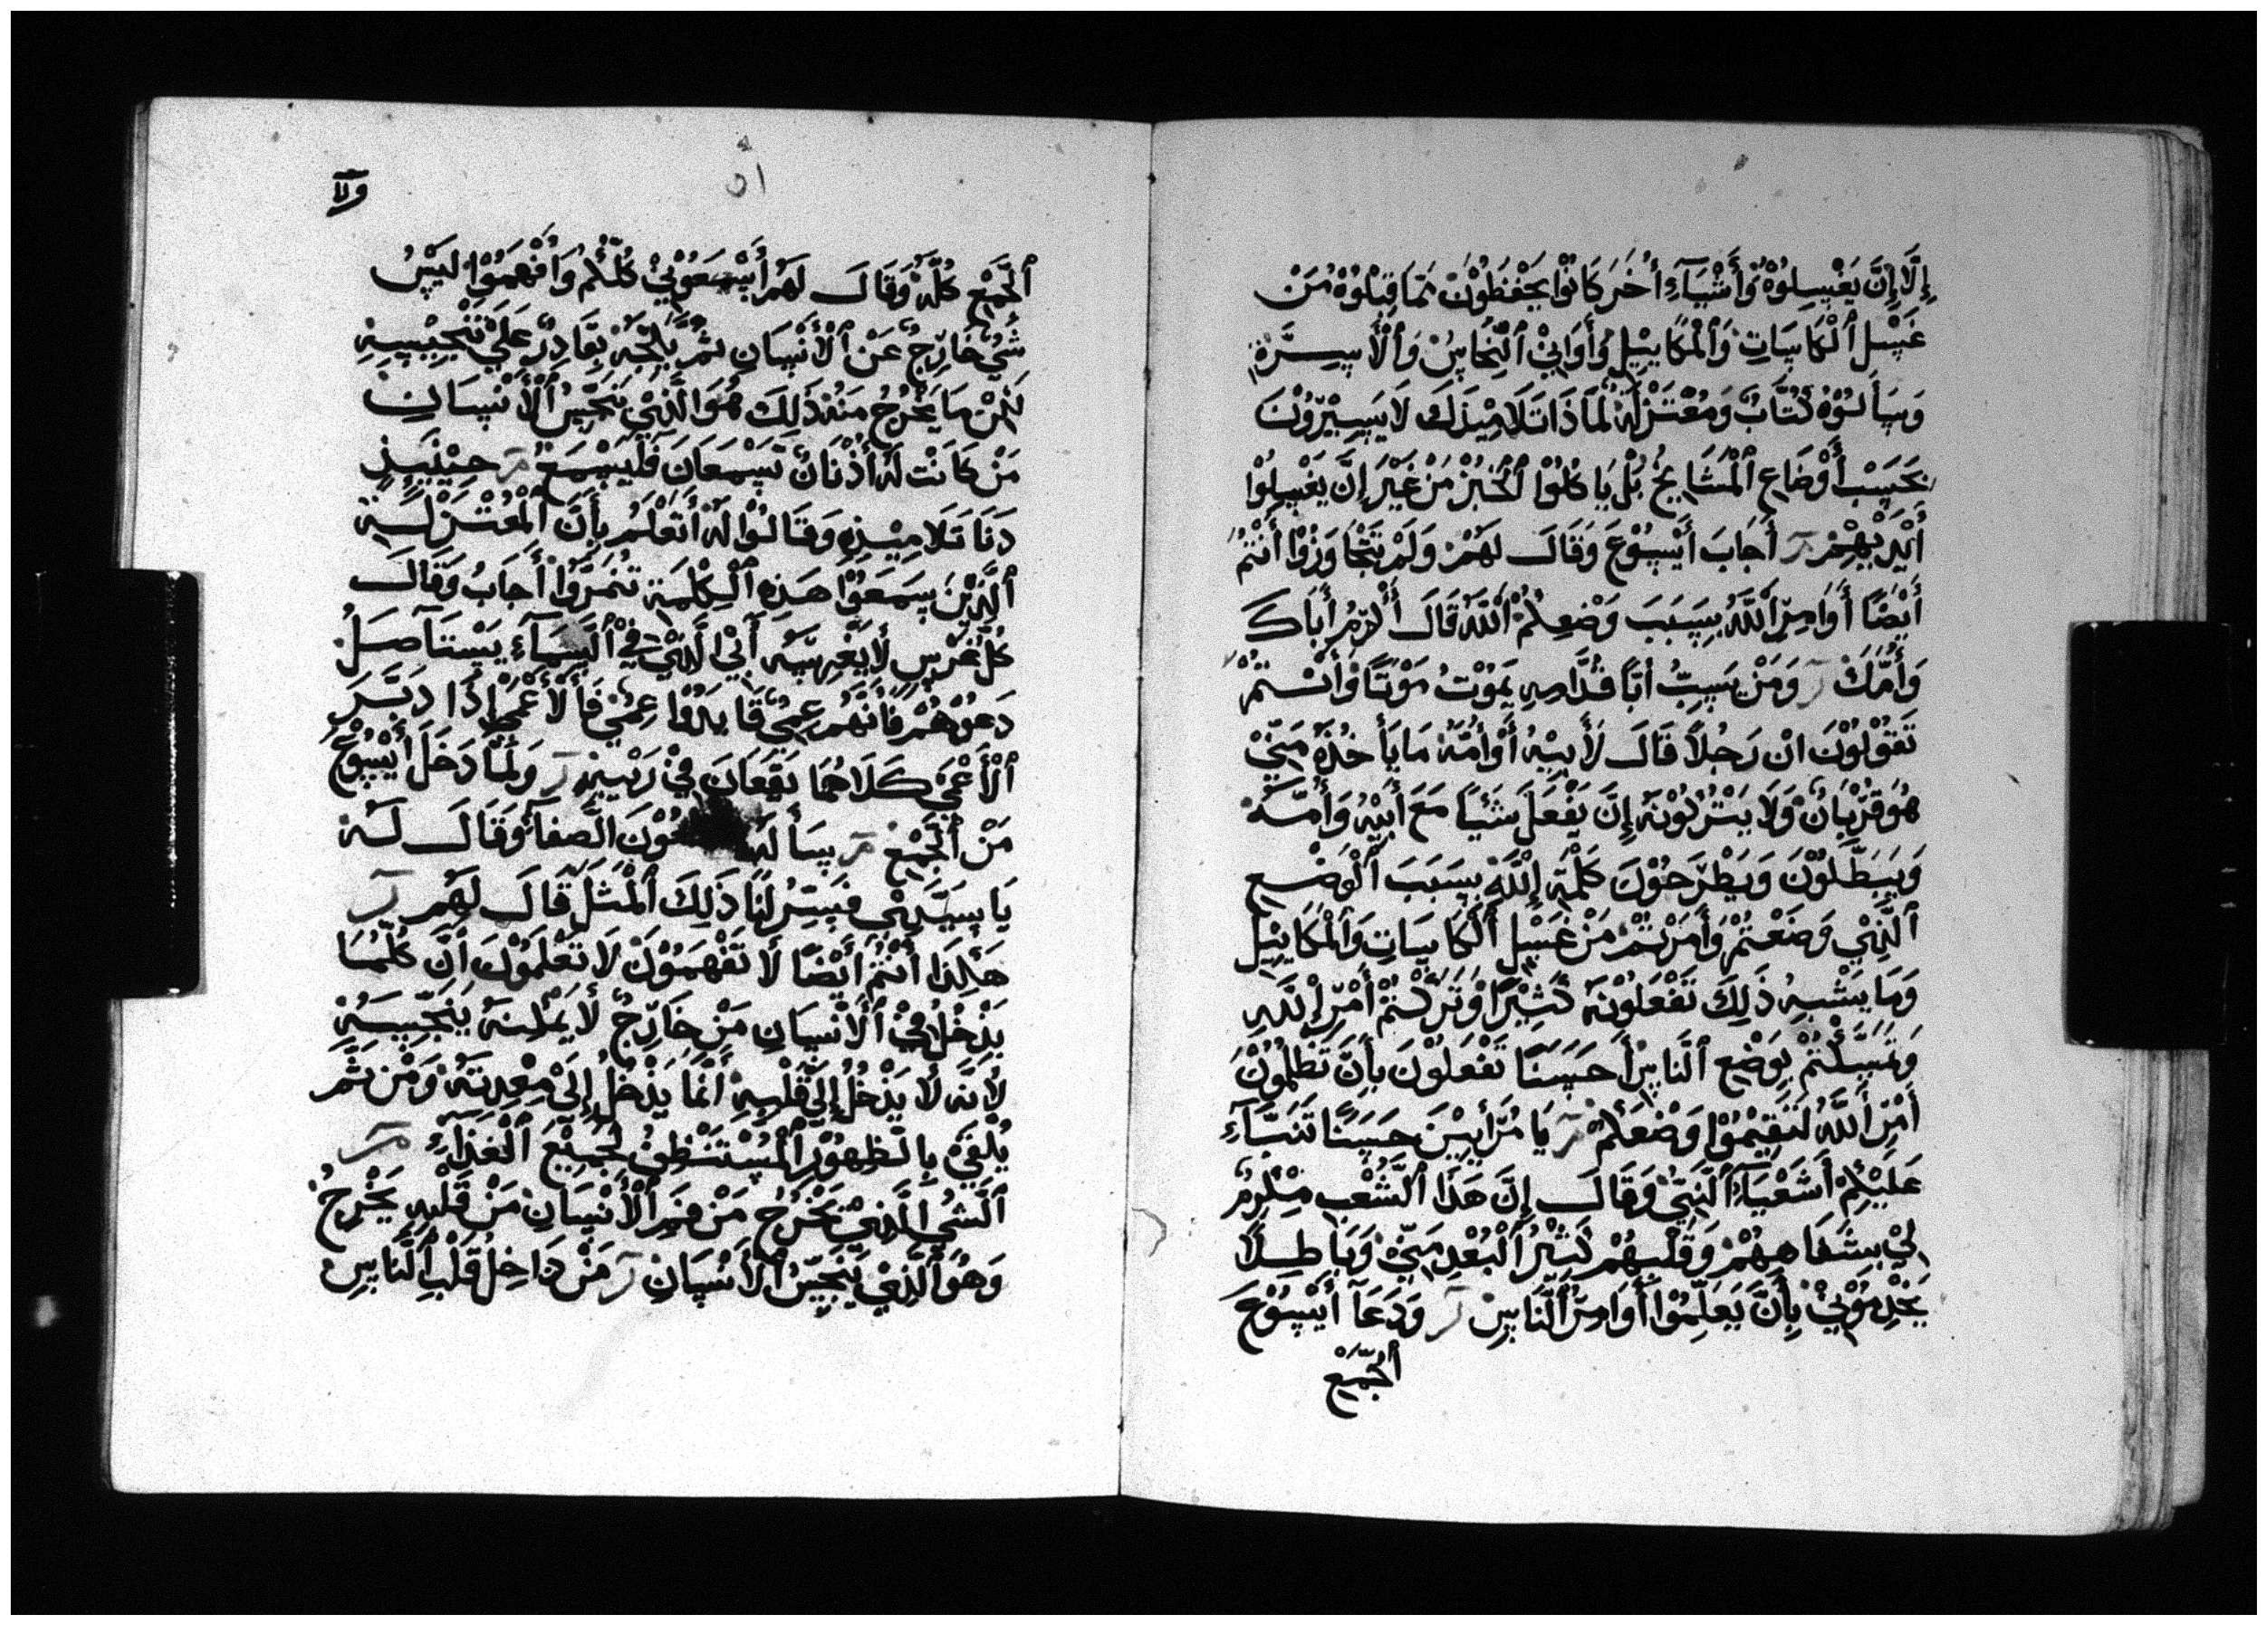 إِلَّا إِنَّ يَغْسِلُوْهُ وَأَشْيَآءِ أُخَرَ كَانُوْا يَحْفَظُوْنَ مِمَّا قِبْلُوْهُ مَنْ
غَسْلِ ٱلْكَاسَاتِ وَٱلْمَكَايِيْلِ وَأَوَانِيْ ٱلنُّحَاسِ وَٱلْأَسِرَّةِ
وَسَأَلُوْهُ كُتَّابٌ وَمُعْتَزِلَةٌ لِمَاذَا تَلَامِيْذَكَ لَا يَسِيْرُوْنَ
بَحَسْبِ أَوْضَاعِ ٱلْمَشَايِخُ بَلْ يَاكُلُوْا ٱلْخُبْزَ مَنْ غَيْرَ إِنَّ يَغْسِلُوْا
أَيْدِيْهِمْ أَجَابَ أَيْسُوْعَ وَقَالَ لَهَمْ وَلَمْ تَتْجَاوَزُوْا أَنْتُمْ
أَيْضًا أَوَامِرَ ٱللَّهِ بِسَبَبَ وَضْعِكُمْ ٱللَّهُ قَالَ أَكْرِمْ أَبَاكَ
وَأُمَّكَ وَمَنْ يَسِبُّ أَبًا قُدَّامِهِ يَمُوْتُ مَوْتًا وَأَنْتُمْ
تَقُوْلُوْنَ انْ رَجُلًا قَالَ لَأَبِيْهُ أَوْ أُمَّهُ مَا يَأَخُذْهُ مِنِّيْ
هُوَ قُرْبَانٌ وَلَا يَتْرُكُوْنَهُ إِنَّ يَفْعَلَ شَيْئًا مَعَ أَبِيْهُ وَأُمَّهُ
وَيَبَطِّلُوْنَ وَيَطْرَحُوْنَ كَلْمَةِ ٱللَّهِ بِسَبَبَ ٱلْوَضْعِ
ٱلَّذِيْ وَضَعْتُمْ وَأَمَرْتُمْ مَنْ غَسْلِ ٱلْكَاسَاتِ وَٱلْمَكَايِيْلِ
وَمَا يَشْبِهُ ذَلِكَ تَفْعَلُوْنَهُ كَثِيْرًا وَتَرَكْتُمْ أَمْرَ ٱللَّهِ
وَتَمَسَّكْتُمْ بِوَضْعِ ٱلنَّاسِ أَحَسَنًا تَفْعَلُوْنَ بِأَنَّ تَظْلِمُوْنَ
أَمْرَ ٱللَّهُ لَتَقِيْمُوْا وَضْعَكُمْ يَا مُرَأَيِيْنَ حَسَنًا تَنَبَّاءَ
عَلَيْكُمْ أَشَعْيَاءَ ٱلنَّبِيُّ وَقَالَ إِنَّ هَذَا ٱلشَّعْبِ مُكْرِمٌ
لِيْ بِشَفَاهِهُمْ وَقَلْبِهُمْ كَثِيْرُ ٱلْبُعْدِ مِنِّيْ وَبَاطِلًا
يَخْدِمُوْنِيْ بِأَنَّ يَعَلِّمُوْا أَوَامِرَ ٱلنَّاسِ وَدَعَآ أَيْسُوْعَ
ٱلْجَمِيْعِ
ولا
٥١
ٱلْجَمِيْعِ كُلَّهُ وَقَالَ لَهَمْ أَسْمَعُوْنِيْ كُلُّكُمْ وَافْهَمُوْا لَيْسُ
شَيْءٌ خَارِجٌ عَنْ ٱلْأَنْسَانِ ثُمَّ يَلِجُهُ بِقَادِرٍ عَلَيْ تَنْجِيْسِهِ
لَكِنْ مَا يَخْرُجُ مَنْهُ ذَلِكَ هُوَ ٱلَّذِيْ يَنَجِّسُ ٱلْأَنْسَانِ
مَنْ كَانَتْ لَهُ أُذْنَانٌ تَسْمَعَانَ فَلْيَسْمَعْ حِيْنَئِذٍ
دَنَا تَلَامِيْذِهِ وَقَالُوْا لَهُ أَتَعْلَمُ بِأَنَّ ٱلْمُعْتَزِلَةِ
ٱلَّذِيْنَ سَمَعُوْا هَذِهِ ٱلْكِلْمَةِ تُنَمَرُّوْا أَجَابُ وَقَالَ
كُلَّ غَرْسٍ لَا يَغْرِسَهُ أَبِيْ ٱلَّذِيْ فِيْ ٱلسَّمَآءِ يَسْتَآصَلُ
دَعُوْهُمْ فَأَنَّهُمْ عِمْيٌ قَايِدُوْا عِمْيٍ فَٱلْأَعْمَيْ إِذَا دَبَّرَ
ٱلْأَعْمَيْ كَلَاهُمَا يَقَعَانَ فِيْ رَهْسِهِ وَلَمَّا دَخَلَ أَيْسُوْعُ
مَنْ ٱلْجَمِيْعِ سَأَلَهُ شَمْعُوْنَ ٱلصَّفَا وَقَالَ لَهُ
يَا سَيِّدِيْ فَسِّرْ لَنَا ذَلِكَ ٱلْمَثَلَ قَالَ لَهَمْ
هَكَذَا أَنْتُمْ أَيْضًا لَا تَفْهَمُوْنَ لَا تَعْلَمُوْنَ أَنَّ كُلَّمَا
يَدْخُلُ فِيْ ٱلْأَنْسَانِ مَنْ خَارِجٌ لَا يَمْكِنَهُ يَنَجِّسَهُ
لِأَنَّهُ لَا يَدْخُلُ إِلَيْ قَلْبِهِ أَنَّمَا يَدْخُلُ إِلَيْ مَعِدَتِهُ وَمَنْ ثَمَّ
يُلْقَيْ بِالظَهُوْرِ ٱلْمُسْتَنْظِفُ لَجَمِيْعَ ٱلْغِذَآءِ
ٱلشَّيْءِ ٱلَّذِيْ يَخْرُجُ مَنْ فَمِ ٱلْأَنْسَانِ مَنْ قَلْبِهِ يَخْرِجُ
وَهُوَ ٱلَّذِيْ يَنَجِّسُ ٱلْأَنْسَانِ مَنْ دَاخِلُ قَلْبِ ٱلنَّاسِ